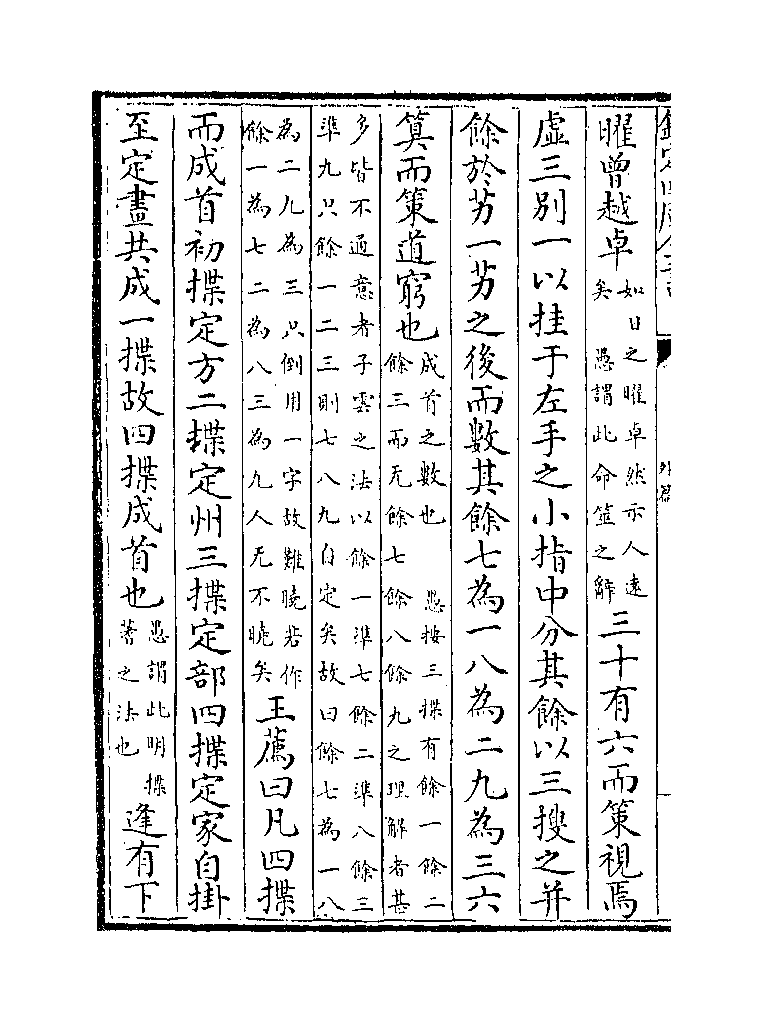 曜曾越卓如日之曜卓然示人遠矣　愚謂此命筮之辭三十有六而策視焉
虛三別一以挂于左手之小指中分其餘以三搜之并
餘於艻一艻之後而數其餘七為一八為二九為三六
筭而策道窮也成首之數也　愚按三揲有餘一餘二餘三而无餘七餘八餘九之理解者甚
多皆不通意者子雲之法以餘一準七餘二準八餘三準九只餘一二三則七八九自定矣故曰餘七為一八
為二九為三只倒用一字故難曉若作餘一為七二為八三為九人无不曉矣王薦曰凡四揲
而成首初揲定方二揲定州三揲定部四揲定家自掛
至定畫共成一揲故四揲成首也愚謂此明揲蓍之法也逢有下